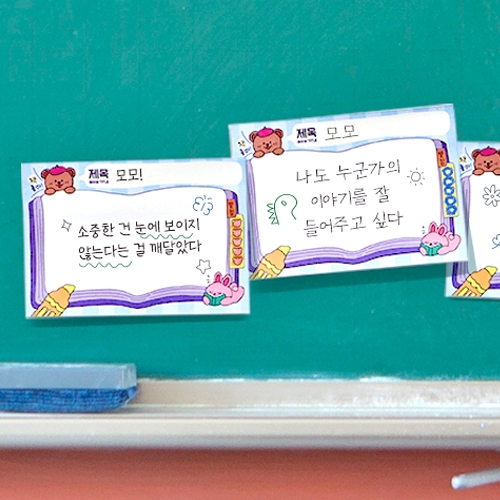 제목 모모!
소중한 건 눈에 보이지
않는다는 걸 깨달았다
제목 모모
나도 누군가의
이야기를 잘
들어주고 싶다
제목